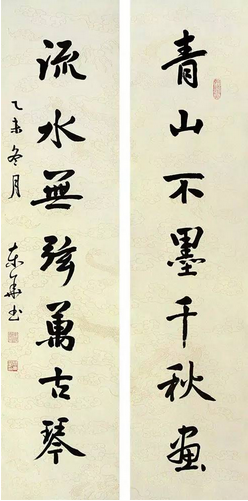 青山不墨千秋畫
流水無弦萬古琴
乙未冬月
東華書